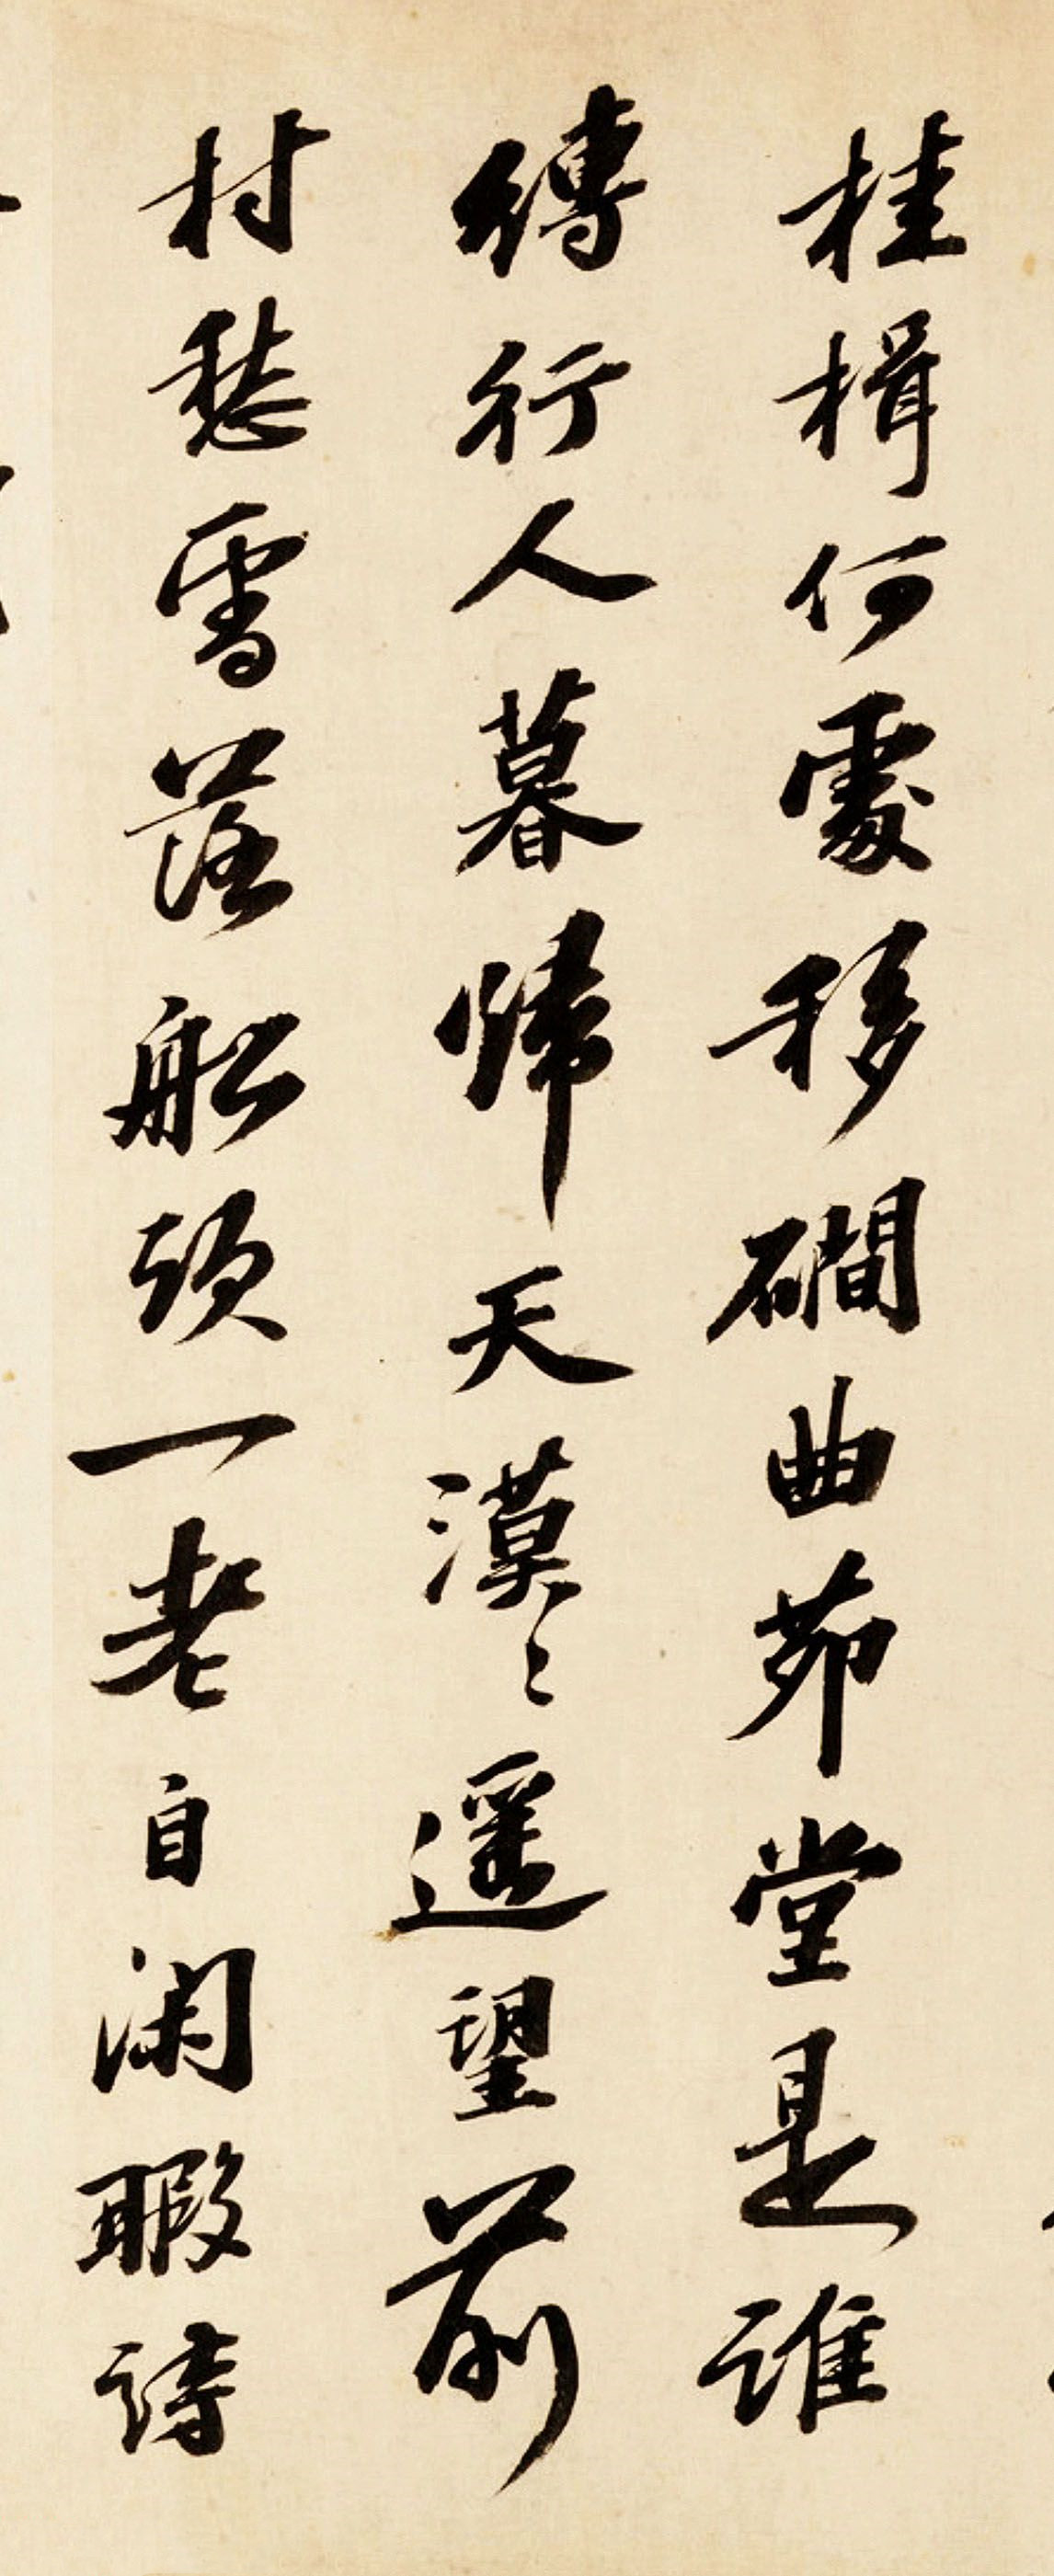 桂楫何處移磵曲茆堂是誰
縛行人暮歸天漠〻遥望前
村愁雪落船頭一老自閑暇詩